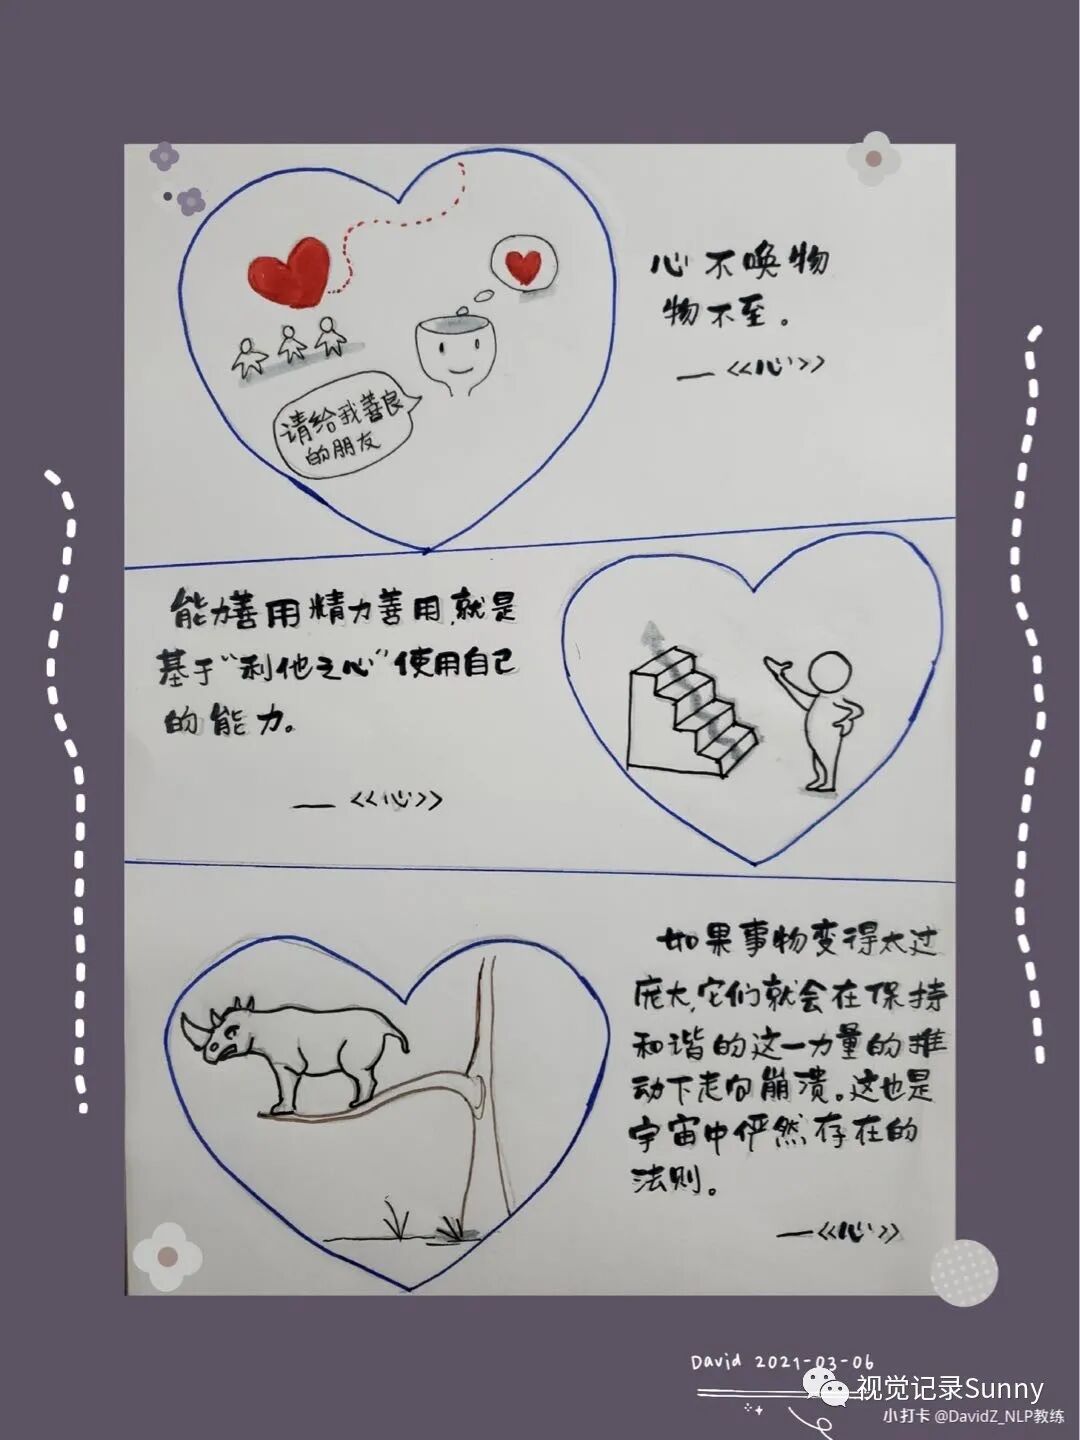 心不唤物
物不至。
—《心》
请给我善良
的朋友
能力善用精力善用,就是
基于“利他之心”使用自己
的能力。
—《心》
如果事物变得太过
庞大,它们就会在保持
和谐的这一力量的推
动下走向崩溃。这也是
宇宙中俨然存在的
法则。
—《心》
David 2021-03-06
视觉记录Sunny
小打卡 @DavidZ_NLP教练